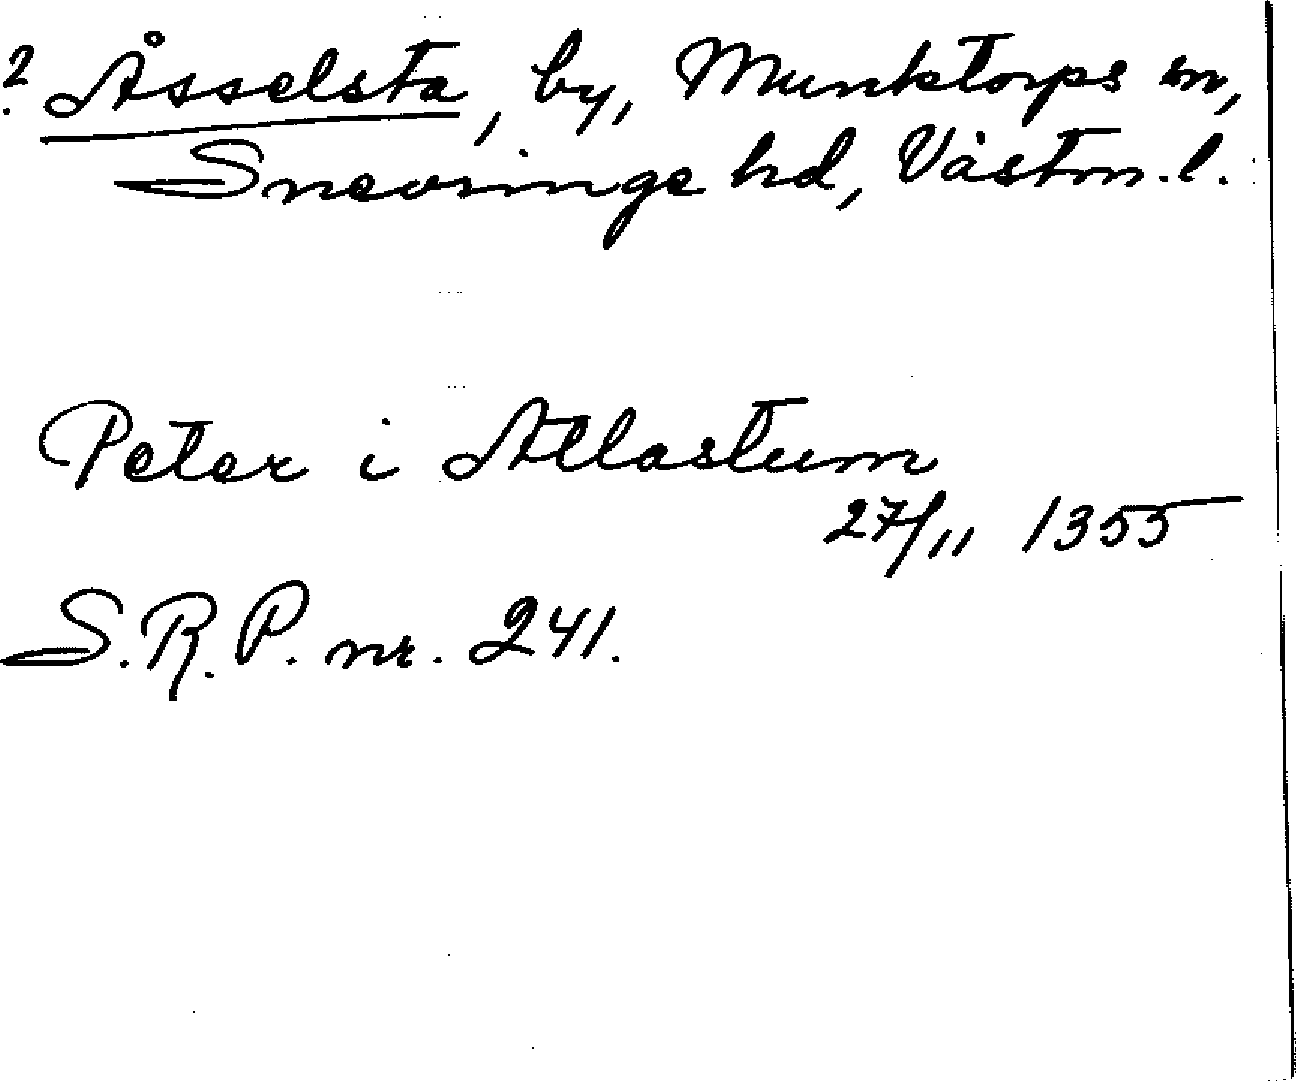 ? Åsselsta, by, Munktorps sn,
Snevringe hd, Västm. l.
Peter i Atlastum
27/11 1355
S.R.P. nr. 241.